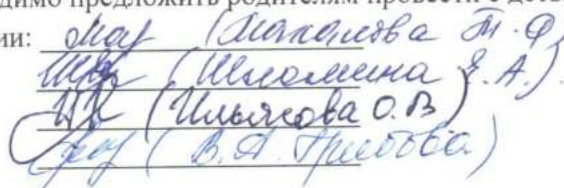 димо предложить родителям провести с
ии: (Макалова Т.Ф)
(Шломина Е.А.).
(Ильясова О.В)
(В.А. Грибова)